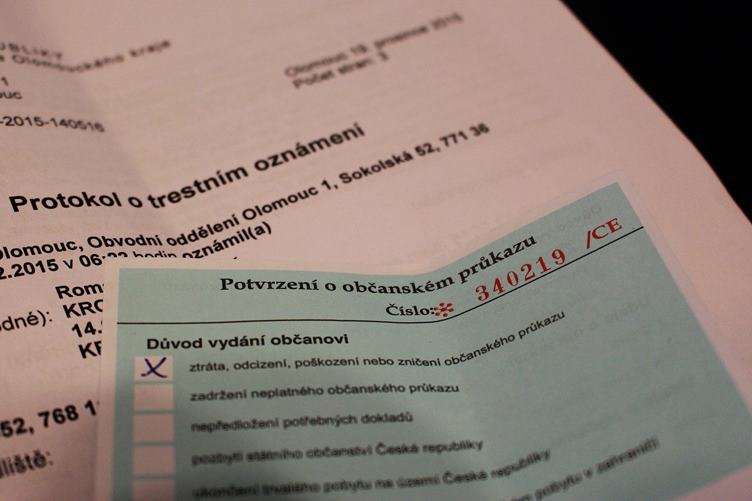 UBLIKY
Olomouckého kraje
1
ouc
Olomouc 19. prosince 2015
Počet stran: 3
-2015-140516
Protokol o trestním oznámení
Olomouc, Obvodní oddělení Olomouc 1, Sokolská 52, 771 36
2.2015 v 06: hodin oznámil(a)
Rom
odné): KRO
14.
KR
52, 768 1
dliště:
Potvrzení o občanském průkazu
Číslo:* 340219 /CE
Důvod vydání občanovi
X ztráta, odcizení, poškození nebo zničení občanského průkazu
zadržení neplatného občanského průkazu
nepředložení potřebných dokladů
pozbytí státního občanství České republiky
ukončení trvalého pobytu na území České republiky
pobytu v zahraničí